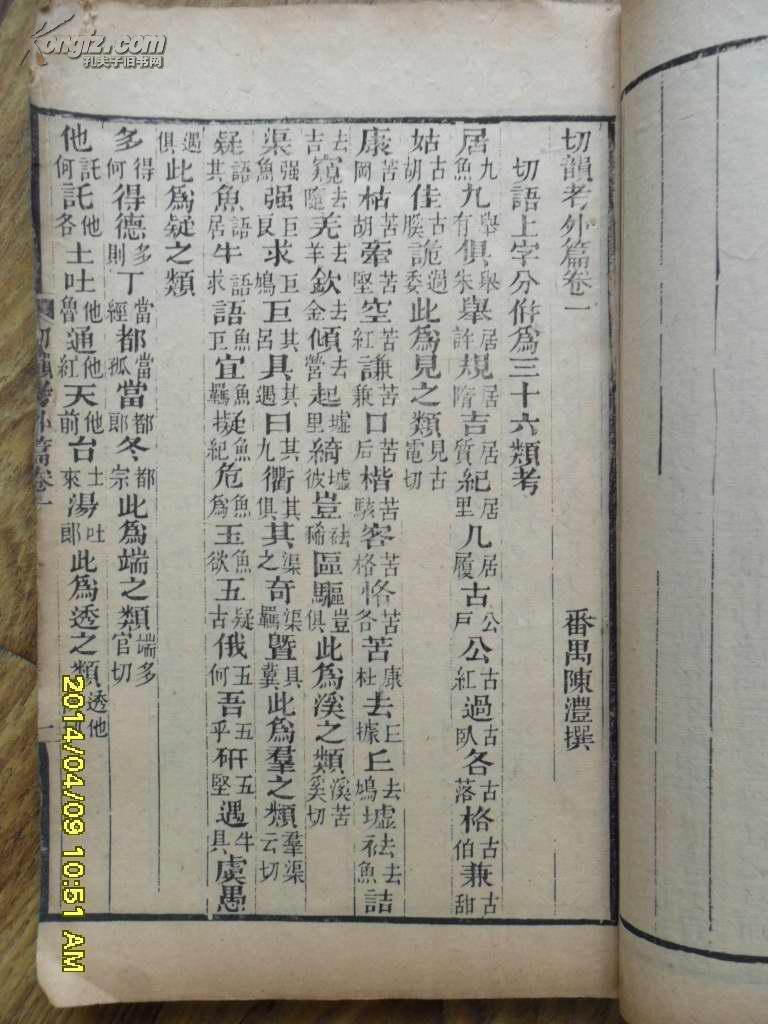 Kongfz.com
孔夫子旧书网
切韻考外篇卷一　番禺陳澧撰
切語上字分併爲三十六類考
居九魚九舉有俱舉朱舉居許規居隋吉居質紀居里几居履古公戶公古紅過古臥各古落格古伯兼古甜
姑古胡佳古膎詭過委此爲見之類見古電切
康苦岡枯苦胡牽苦堅空苦紅謙苦兼口苦后楷苦駭客苦格恪苦各苦康杜去丘據丘去鳩墟祛去魚詰
去吉窺去隨羌去羊欽去金傾去營起墟里綺墟彼豈祛狶區驅豈俱此爲溪之類溪苦奚切
渠强魚强巨良求巨鳩巨其呂具其遇臼其九衢其俱其渠之奇渠羈暨具冀此爲羣之類羣渠云切
疑語其魚語居牛語求語魚巨宜魚羈擬魚紀危魚爲玉魚欲五疑古俄五何吾五乎研五堅遇牛具虞愚
遇俱此爲疑之類
多得何得德多則丁當經都當孤當都郎冬都宗此爲端之類端多官切
他託何託他各土吐他魯通他紅天他前台土來湯吐郎此爲透之類透他
切韻考外篇卷一　一
2014/04/09 10:51 AM